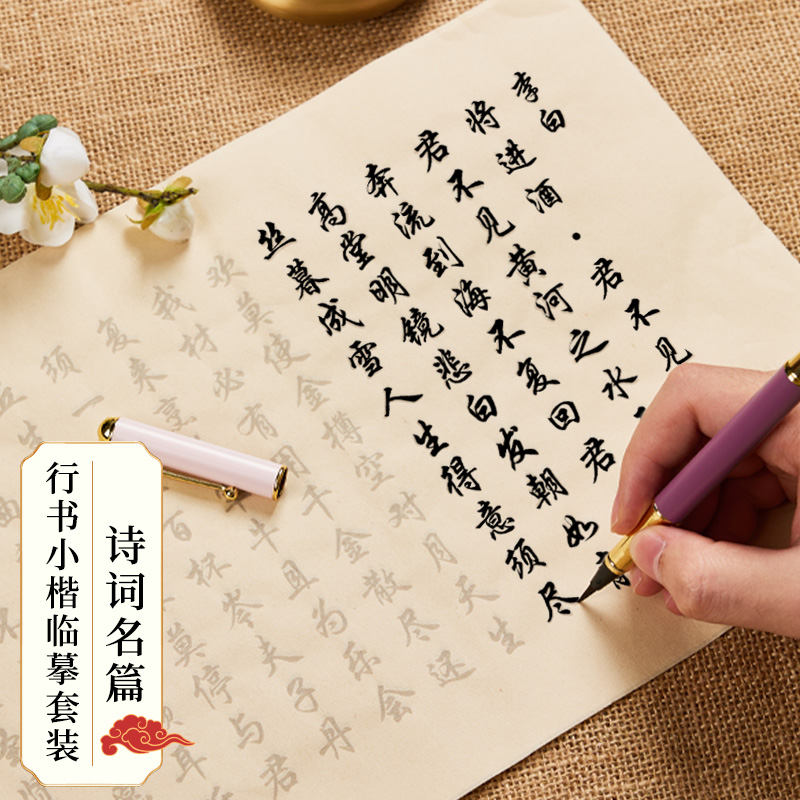 李白
将进酒·君不见
君不见黄河之水
奔流到海不复回君
高堂明镜悲白发朝如
丝暮成雪人生得意须尽
欢莫使金樽空对月天生
我材必有用千金散尽还
复来烹
牛且为乐会
须一
百杯岑夫子丹
生
莫停与君
耳
诗词名篇
行书小楷临摹套装